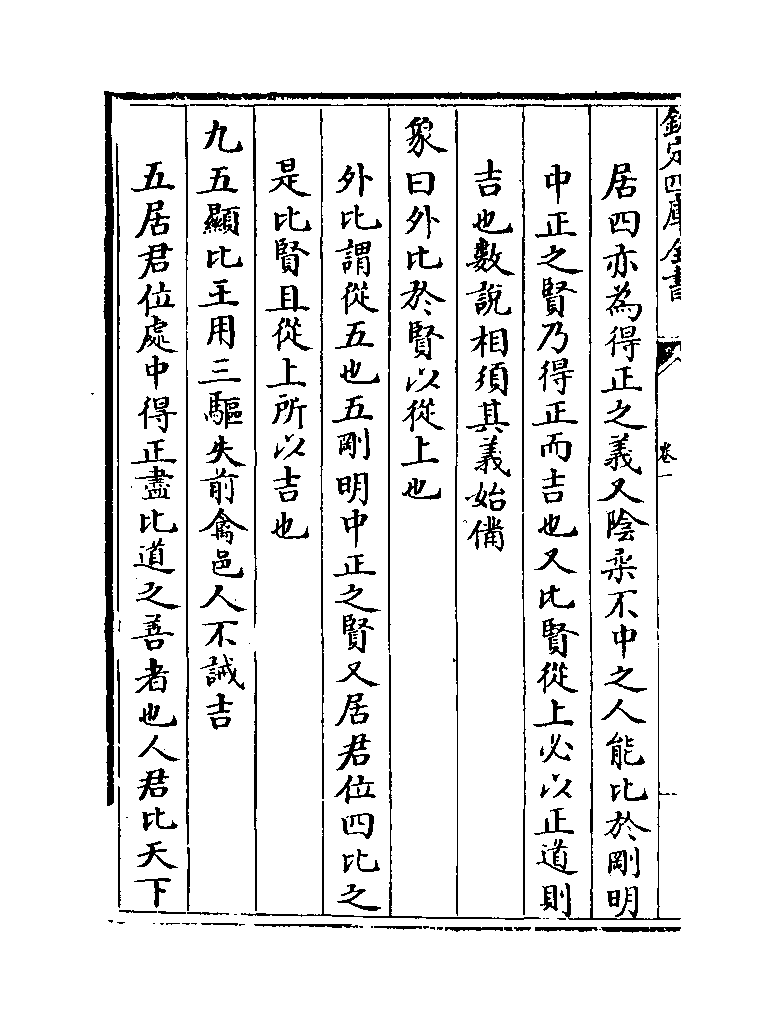 欽定四庫全書
卷一
居四亦為得正之義又陰柔不中之人能比於剛明
中正之賢乃得正而吉也又比賢從上必以正道則
吉也數說相須其義始備
象曰外比於賢以從上也
外比謂從五也五剛明中正之賢又居君位四比之
是比賢且從上所以吉也
九五顯比王用三驅失前禽邑人不誡吉
五居君位處中得正盡比道之善者也人君比天下